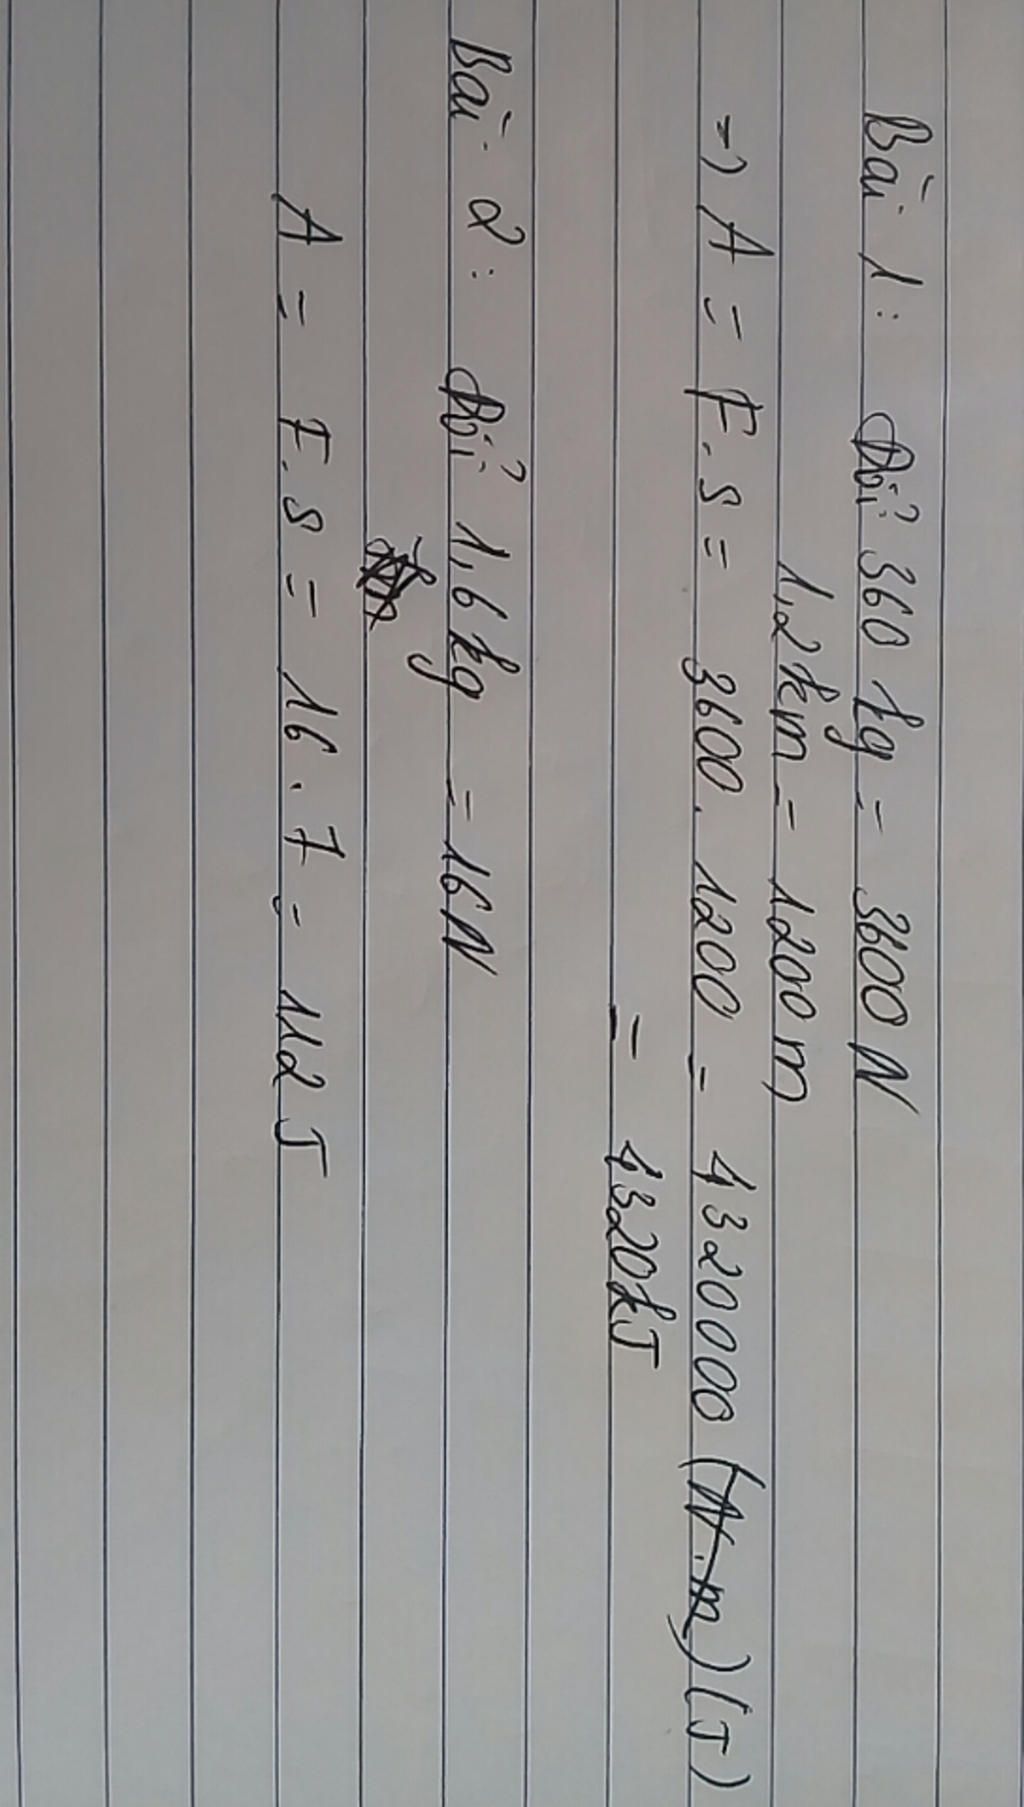 Bài 1: Đổi 360 kg = 3600 N
1,2km = 1200 m
=) A = F.s = 3600.1200 = 4320000 (N.m) (J)
= 4320kJ
Bài 2: Đổi 1,6kg = 16N
A = F.s = 16.7 = 112 J